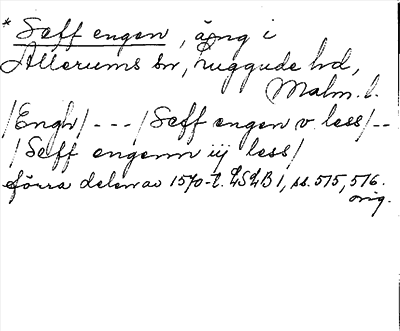 * Saff engen, äng i
Allerums sn, Luggude hd,
Malm. l.
/Engh/ --- /Saff engen v less/--
/Saff engenn iij less/
förra delen av 1570-t. LSLB 1, ss. 515, 516.
orig.